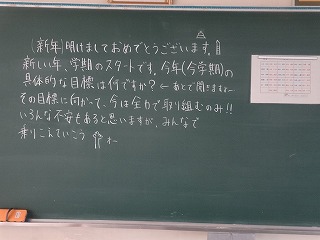 (新年)明けましておめでとうございます。
新しい年、学期のスタートです。今年(今学期)の
具体的な目標は何ですか？←あとで聞きますよー
その目標に向かって、今は全力で取り組むのみ!!
いろんな不安もあると思いますが、みんなで
乗りこえていこう